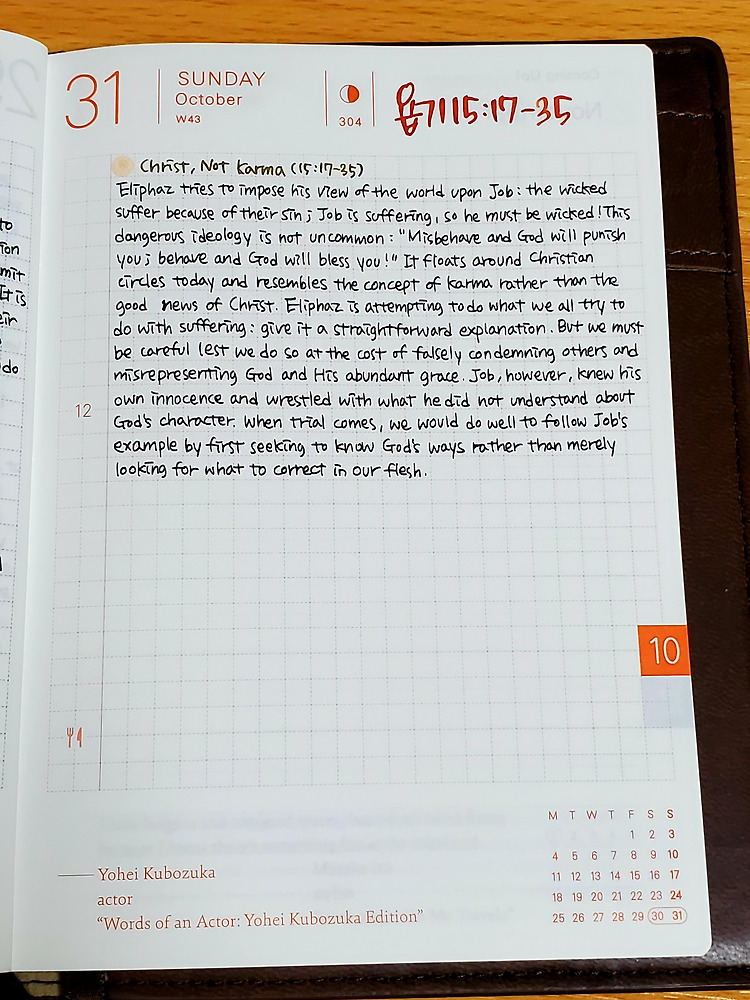 31
SUNDAY
October
W43
304
욥기 15:17-35
Christ, Not Karma (15:17-35)
Eliphaz tries to impose his view of the world upon Job: the wicked
suffer because of their sin; Job is suffering, so he must be wicked! This
dangerous ideology is not uncommon: "Misbehave and God will punish
you; behave and God will bless you!" It floats around Christian
circles today and resembles the concept of karma rather than the
good news of Christ. Eliphaz is attempting to do what we all try to
do with suffering: give it a straightforward explanation. But we must
be careful lest we do so at the cost of falsely condemning others and
misrepresenting God and His abundant grace. Job, however, knew his
own innocence and wrestled with what he did not understand about
God's character. When trial comes, we would do well to follow Job's
example by first seeking to know God's ways rather than merely
looking for what to correct in our flesh.
12
10
M T W T F S S
1 2 3
4 5 6 7 8 9 10
11 12 13 14 15 16 17
18 19 20 21 22 23 24
25 26 27 28 29 30 31
Yohei Kubozuka
actor
"Words of an Actor: Yohei Kubozuka Edition"
to
tion
mit
It is
eir
do